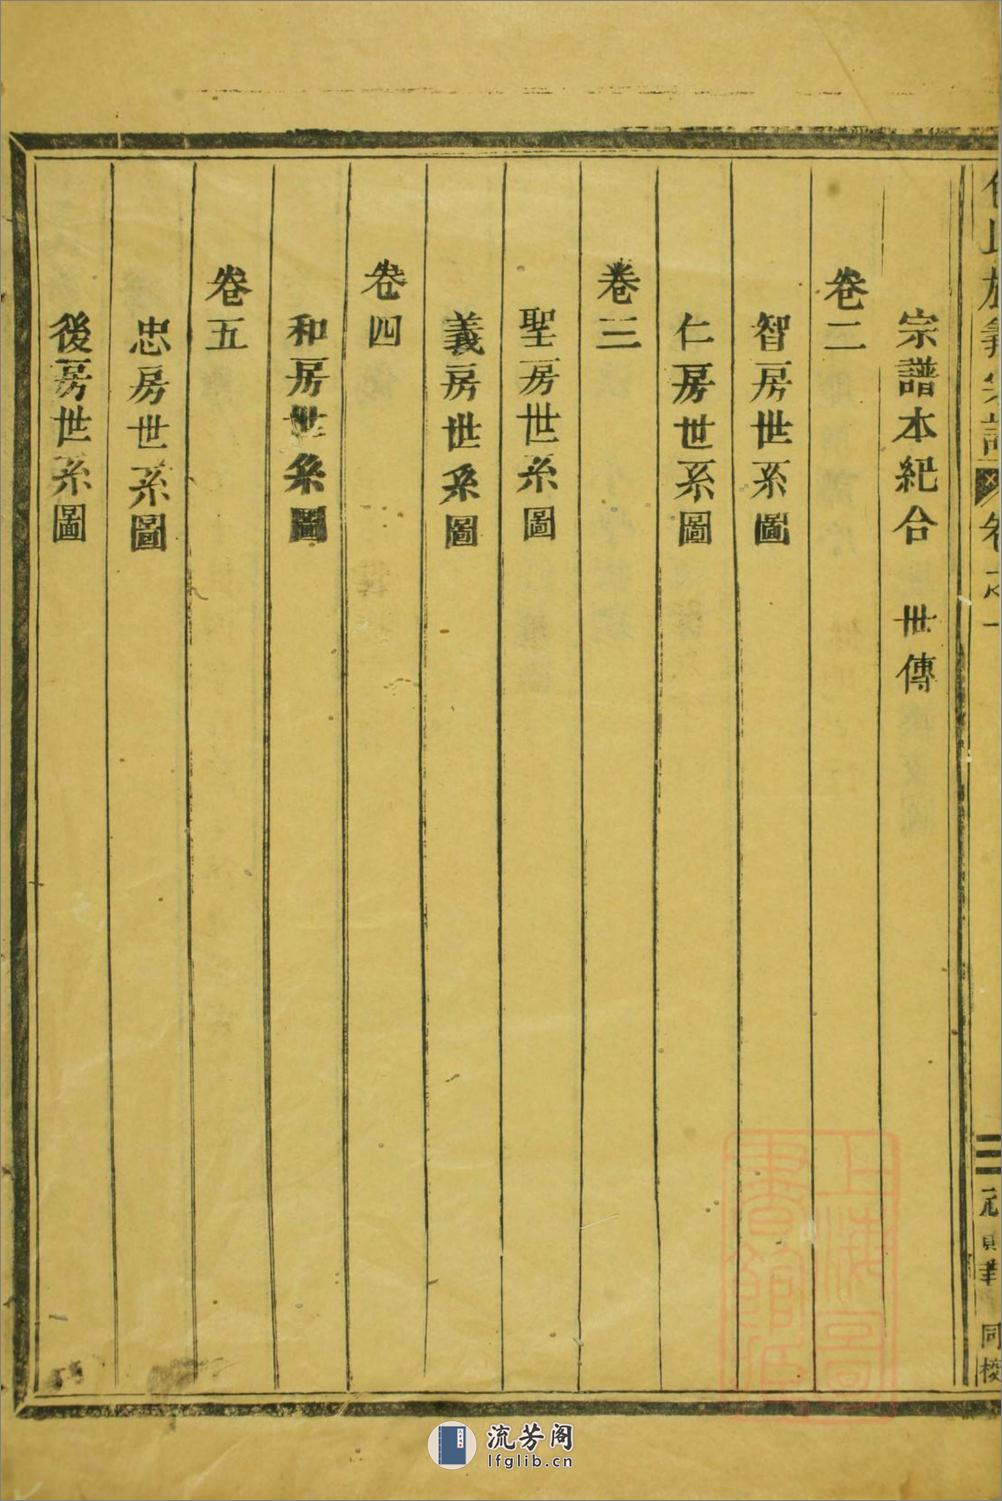 宗譜本紀合 世傳
卷二
智房世系圖
仁房世系圖
卷三
聖房世系圖
義房世系圖
卷四
和房世系圖
卷五
忠房世系圖
後房世系圖
卷之一
二
同梭
上海圖書館藏
流芳阁
lfglib.cn